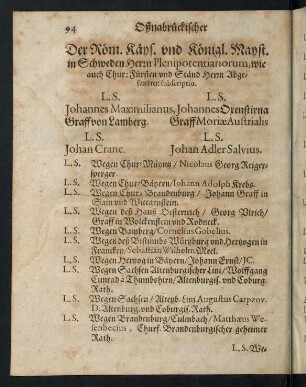 94 Oßnabrückischer
Der Röm. Käys. vnd Königl. Mayst.
in Schweden Herrn Plenipotentiariorum, wie
auch Chur: Fürsten vnd Ständ Herrn Abge-
sandten subscriptio.
L.S. L.S.
Johannes Maximilianus, Johannes Oxenstirna
Graff von Lamberg. Graff Moriæ Austrialis
L.S. L.S.
Johan Crane. Johan Adler Salvius.
L.S. Wegen Chur-Mäyntz / Nicolaus Georg Reiger-
sperger.
L.S. Wegen Chur-Bäyern / Johann Adolph Krebs.
L.S. Wegen Chur-Brandenburg / Johann Graff in
Sain vnd Witgenstein.
L.S. Wegen deß Hauß Oesterreich / Georg Vlrich /
Graff in Wolckenstein vnd Rodneck.
L.S. Wegen Bamberg / Cornelius Gobelius.
L.S. Wegen deß Bistumbs Würtzburg vnd Hertzogen in
Francken / Sebastian Wilhelm Meel.
L.S. Wegen Hertzog in Bäyern / Johann Ernst / JC.
L.S. Wegen Sachsen Altenburgischer Lini / Wolffgang
Cunrad à Thumbshirn / Altenburgis. vnd Coburg.
Rath.
L.S. Wegen Sachsen / Altenb. Lini Augustus Carpzov.
D. Altenburg. vnd Coburgis. Rath.
L.S. Wegen Brandenburg / Culmbach / Matthæus We-
senbecius, Churf. Brandenburgischer geheimer
Rath.
L.S. We-